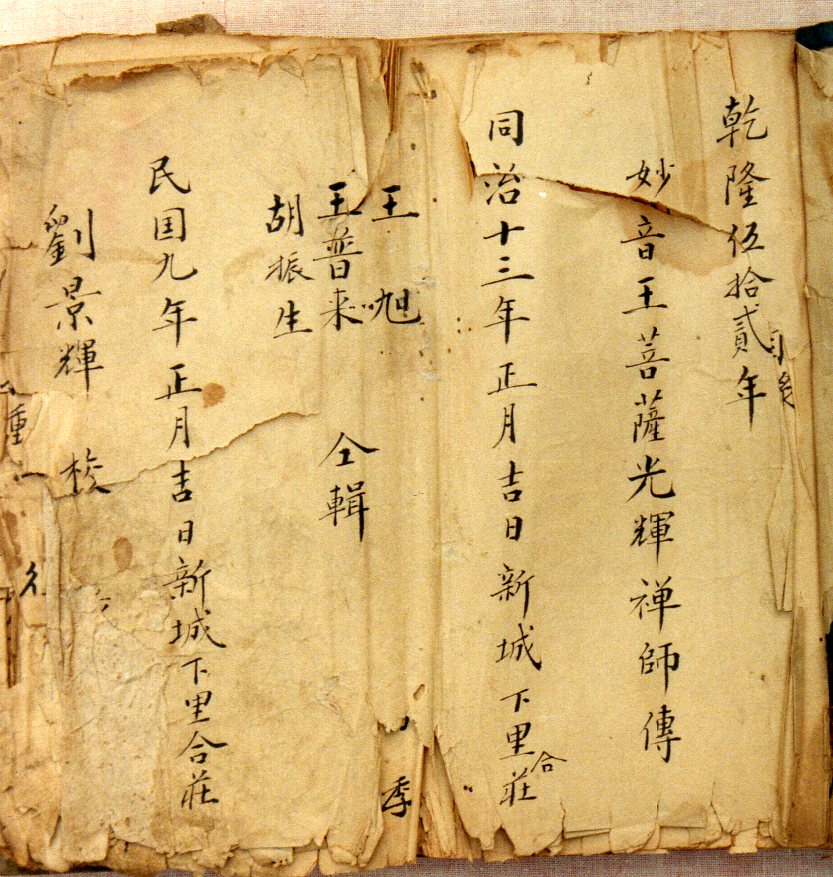 乾隆伍拾貳年
妙音王菩薩光輝禅師傳
同治十三年正月吉日新城下里合莊
王旭
王普来
胡振生
仝輯
民国九年正月吉日新城下里合莊
劉景輝 校
季
重